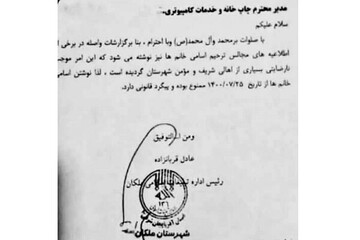 مدیر محترم چاپ خانه و خدمات کامپیوتری.
سلام علیکم
با صلوات برمحمد وآل محمد(ص) وبا احترام ، بنا برگزارشات واصله در برخی از
اطلاعیه های مجالس ترحیم اسامی خانم ها نیز نوشته می شود که این امر موجب
نارضایتی بسیاری از اهالی شریف و مؤمن شهرستان گردیده است ، لذا نوشتن اسامی
خانم ها از تاریخ ۱۴۰۰/۰۷/۲۵ ممنوع بوده و پیگرد قانونی دارد.
ومن الله التوفیق
عادل قربانزاده
رئیس اداره تبلیغات اسلامی ملکان
شهرستان ملکان